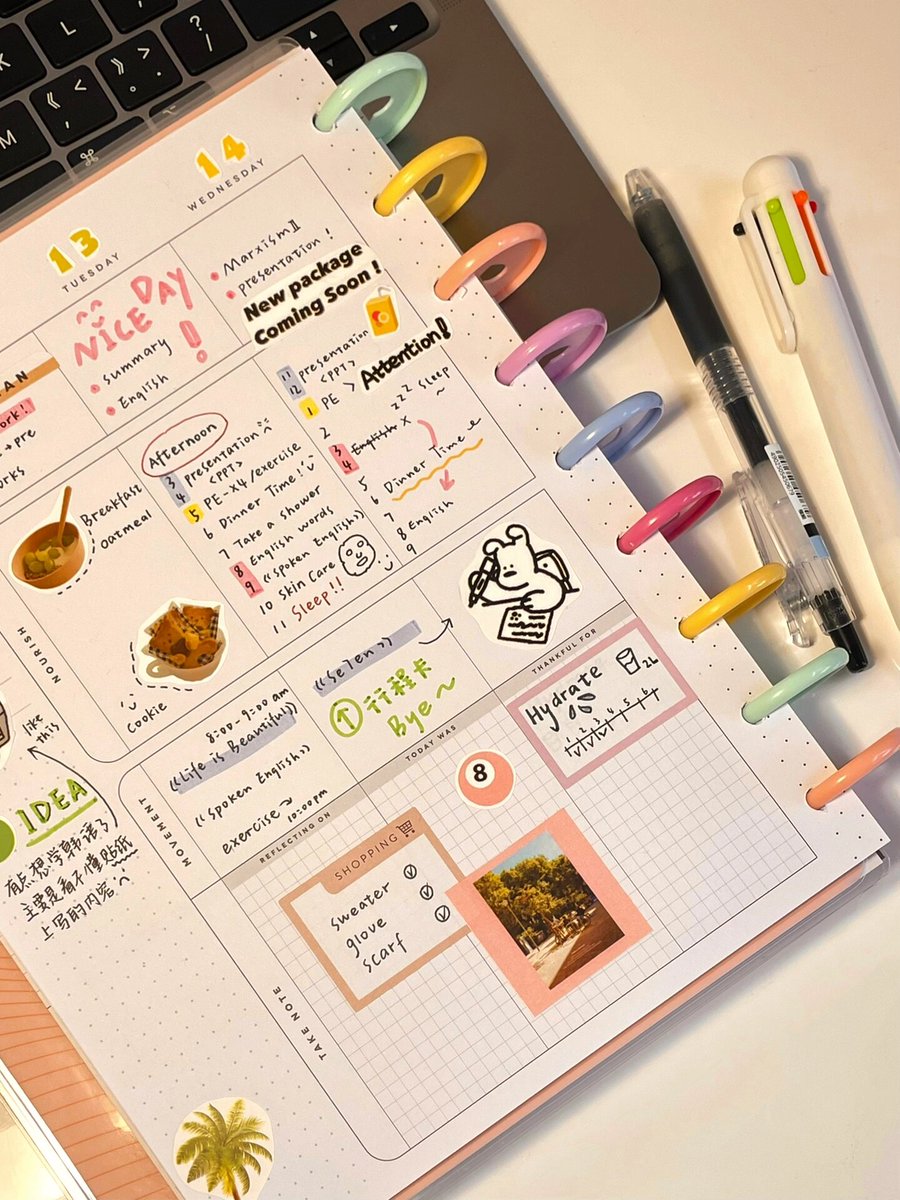 K
L
:
;
"
'
M
《
,
》
。
.
?
/
⌘
13
TUESDAY
14
WEDNESDAY
NICE DAY
!
summary
English
Marxism Ⅱ
presentation!
New package
Coming Soon!
Attention!
Afternoon
3 presentation
4 <PPT>
5 PE-X4/exercise
6 Dinner Time!
7 Take a shower
8 English words
9 《spoken English》
10 Skin Care
11 Sleep!!
11 presentation
12 <PPT>
1 PE >
zzz Sleep ~
2
3 English X
4
5
6 Dinner Time
7
8 English
9
Breakfast
oatmeal
cookie
NOURISH
like
this
IDEA
有点想学韩语了
主要是看不懂贴纸
上写的内容
MOVEMENT
8:00-9:00 am
《Life is Beautiful》
《spoken English》
exercise~
10:00pm
《Se7en》
↑ 行程卡
Bye~
REFLECTING ON
TODAY WAS
THANKFUL FOR
Hydrate
2L
1 2 3 4 5 6
8
SHOPPING
sweater
glove
scarf
TAKE NOTE